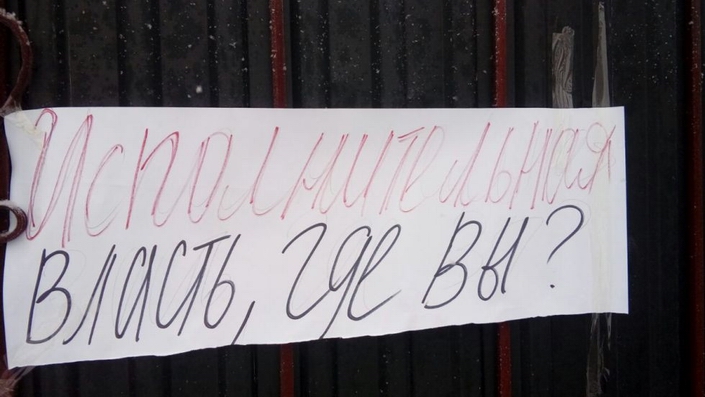 Исполнительная
власть, где вы?